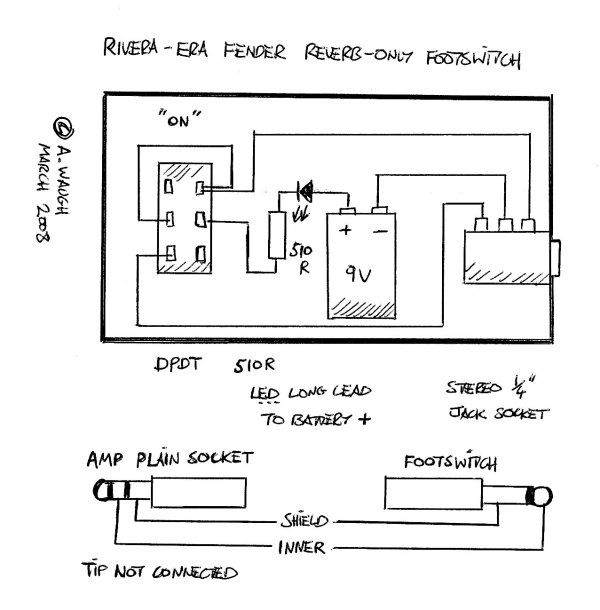 RIVERA-ERA FENDER REVERB-ONLY FOOTSWITCH
© A. WAUGH
MARCH 2008
"ON"
510
R
+ -
9V
DPDT 510R
LED LONG LEAD
TO BATTERY +
STEREO 1/4"
JACK SOCKET
AMP PLAIN SOCKET
FOOTSWITCH
SHIELD
INNER
TIP NOT CONNECTED